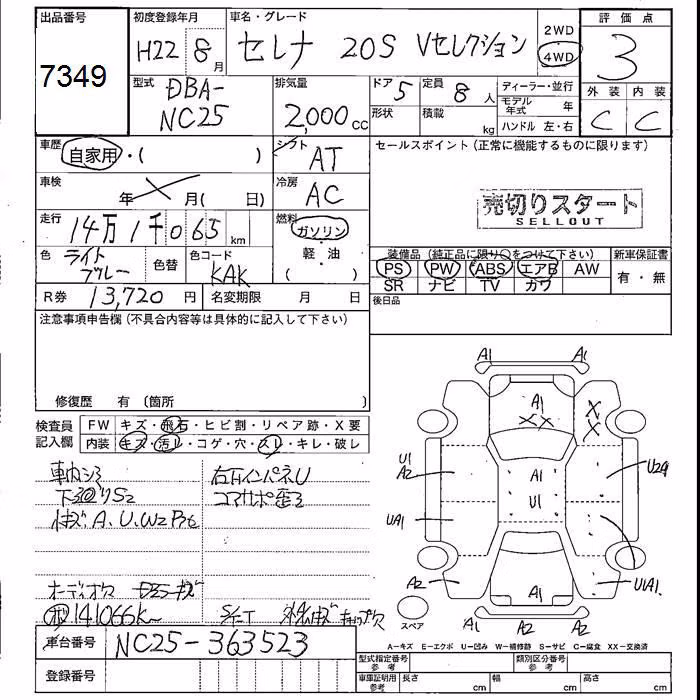 出品番号 7349
初度登録年月 H22 8月
車名・グレード セレナ 20S Vセレクション
2WD
4WD
評価点 3
外装 内装
C C
型式 DBA-NC25
排気量 2,000cc
ドア 5 定員 8人
形状 積載 kg
ディーラー・並行
モデル年式 年
ハンドル 左・右
車歴 自家用・( )
シフト AT
セールスポイント (正常に機能するものに限ります)
車検 年 月( 日)
冷房 AC
売切りスタート
SELLOUT
走行 14万1千065km
燃料 ガソリン
軽・油
( )
色 ライトブルー 色替 色コード KAK
装備品 (純正品に限り○をつけて下さい)
新車保証書
PS PW ABS エアB AW
有・無
SR ナビ TV カワ
R券 13,720円 名変期限 月 日
後日品
注意事項申告欄 (不具合内容等は具体的に記入して下さい)
修復歴 有 (箇所 )
検査員記入欄
FW キズ・飛石・ヒビ割・リペア跡・X要
内装 キズ・汚レ・コゲ・穴・スレ・キレ・破レ
車内シミ
下廻りS2
右右インパネU
オーディオ欠
141066K~
車台番号 NC25-363523
登録番号
A1 A1
A1
X X
X
X
U1
A2
A1
U1
U2A1
UA1
U1A1
A2
A1
A1 A2 A2
スペア
A-キズ E-エクボ U-凹み W-補修跡 S-サビ C-腐食 XX-交換済
型式指定番号 参考
類別区分番号 参考
車庫証明用 参考 長さ cm 幅 cm 高さ cm